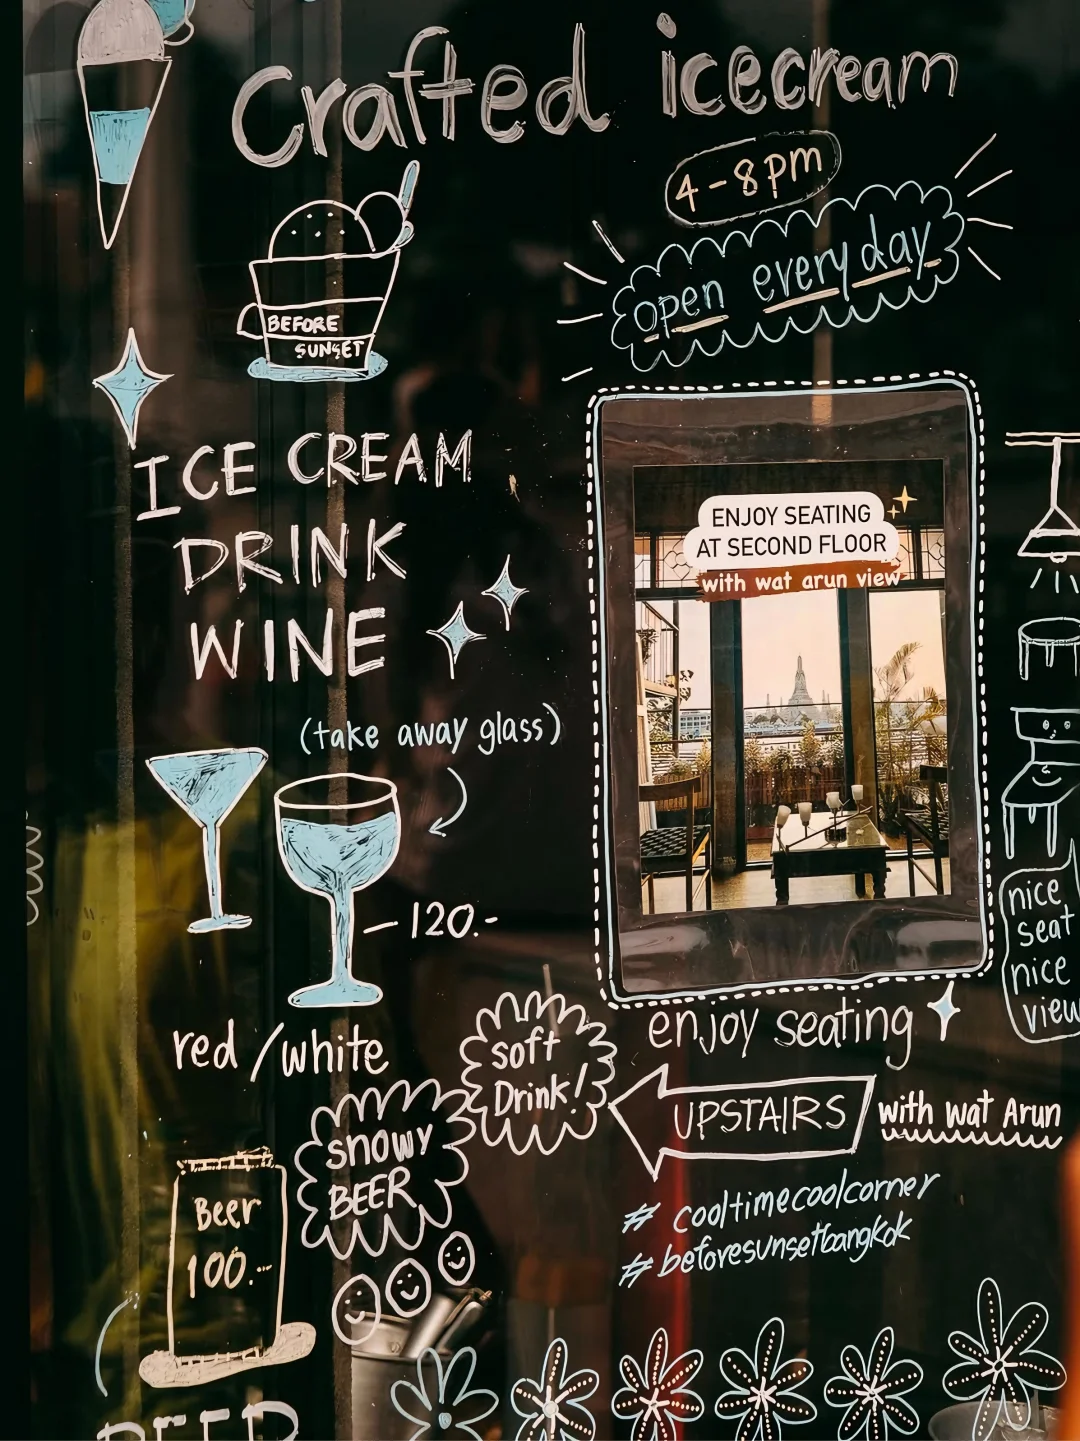 Crafted icecream
4-8pm
open everyday
BEFORE
SUNSET
ICE CREAM
DRINK
WINE
(take away glass)
120.-
red/white
ENJOY SEATING
AT SECOND FLOOR
with wat arun view
nice
seat
nice
view
enjoy seating
UPSTAIRS with wat Arun
soft
Drink!
snowy
BEER
Beer
100.-
# cooltimecoolcorner
# beforesunsetbangkok
BEER